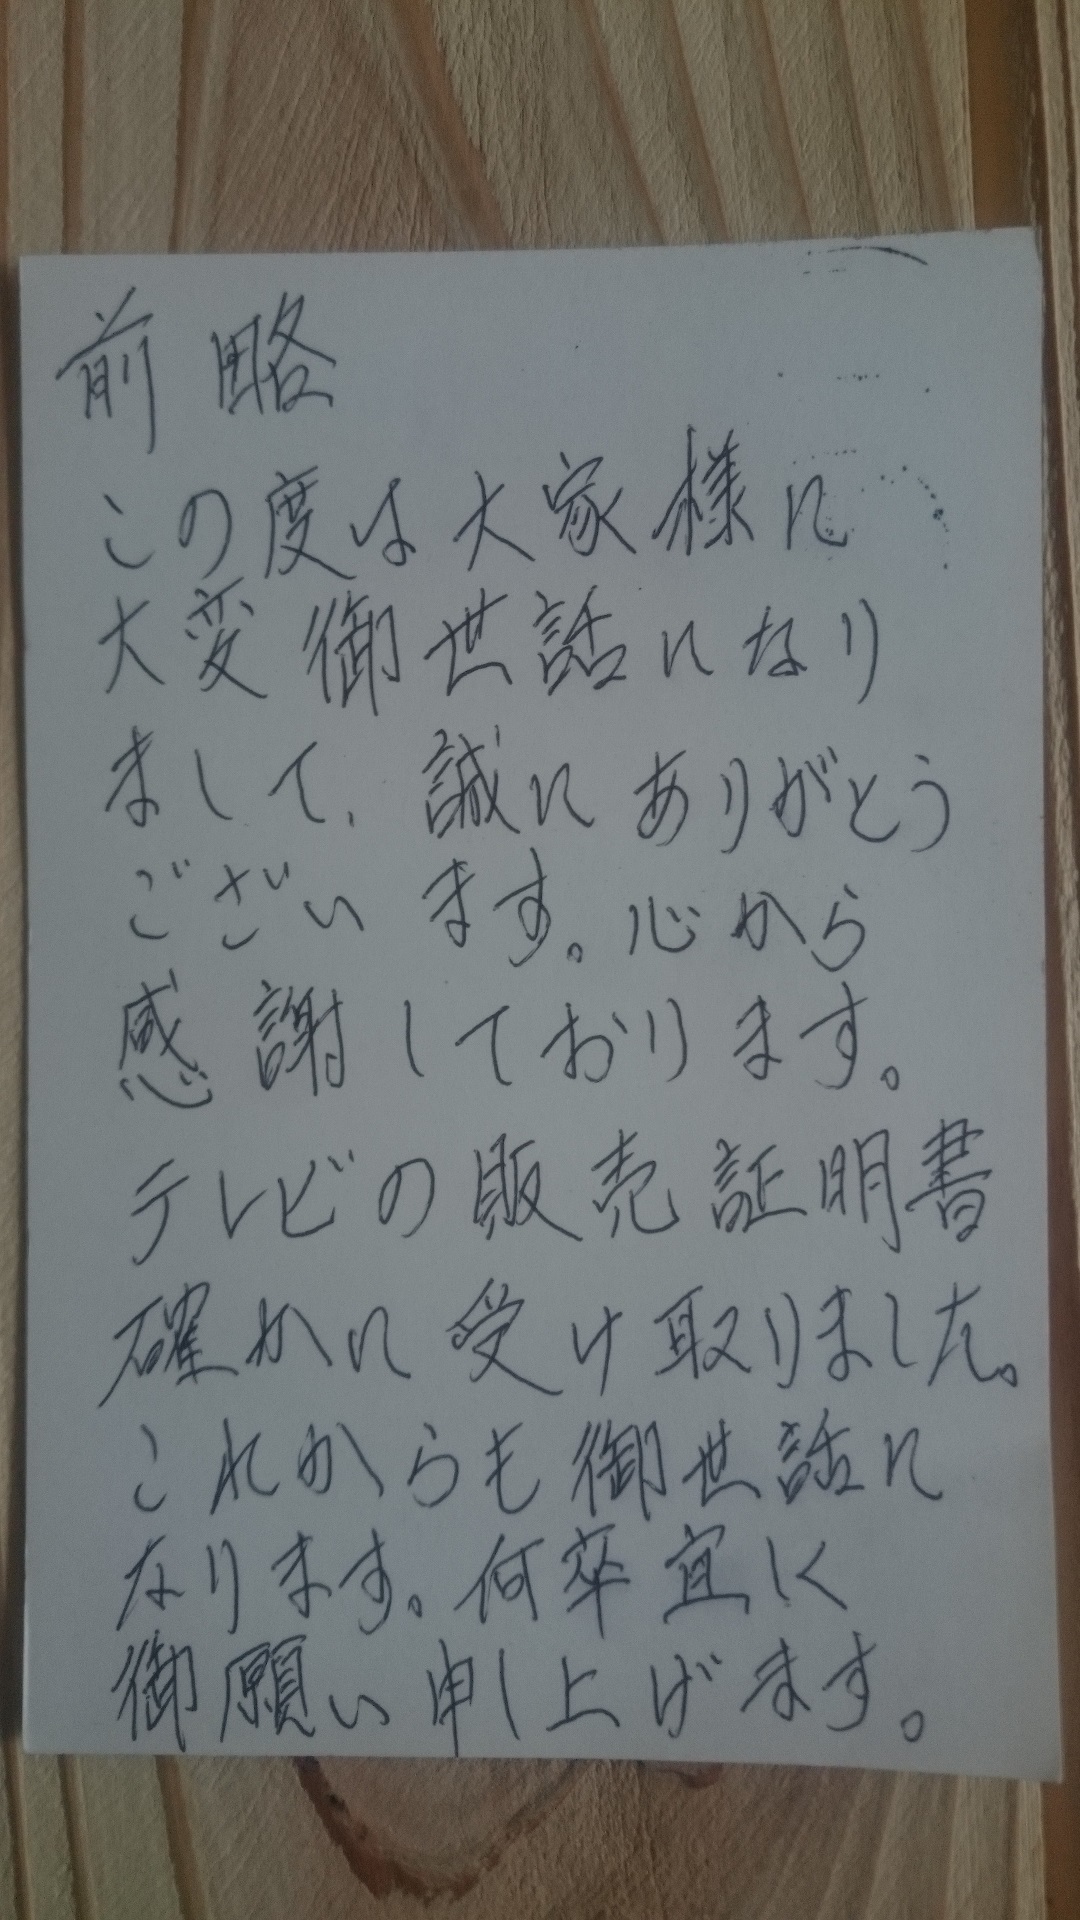 前略
この度は大家様に
大変御世話になり
まして、誠にありがとう
ございます。心から
感謝しております。
テレビの販売証明書
確かに受け取りました。
これからも御世話に
なります。何卒宜しく
御願い申し上げます。